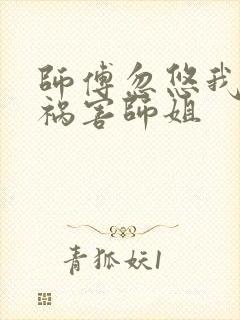 師傅忽悠我
祸害師姐
青狐妖1